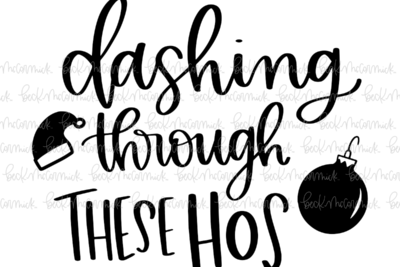 dashing
through
THESE HOS